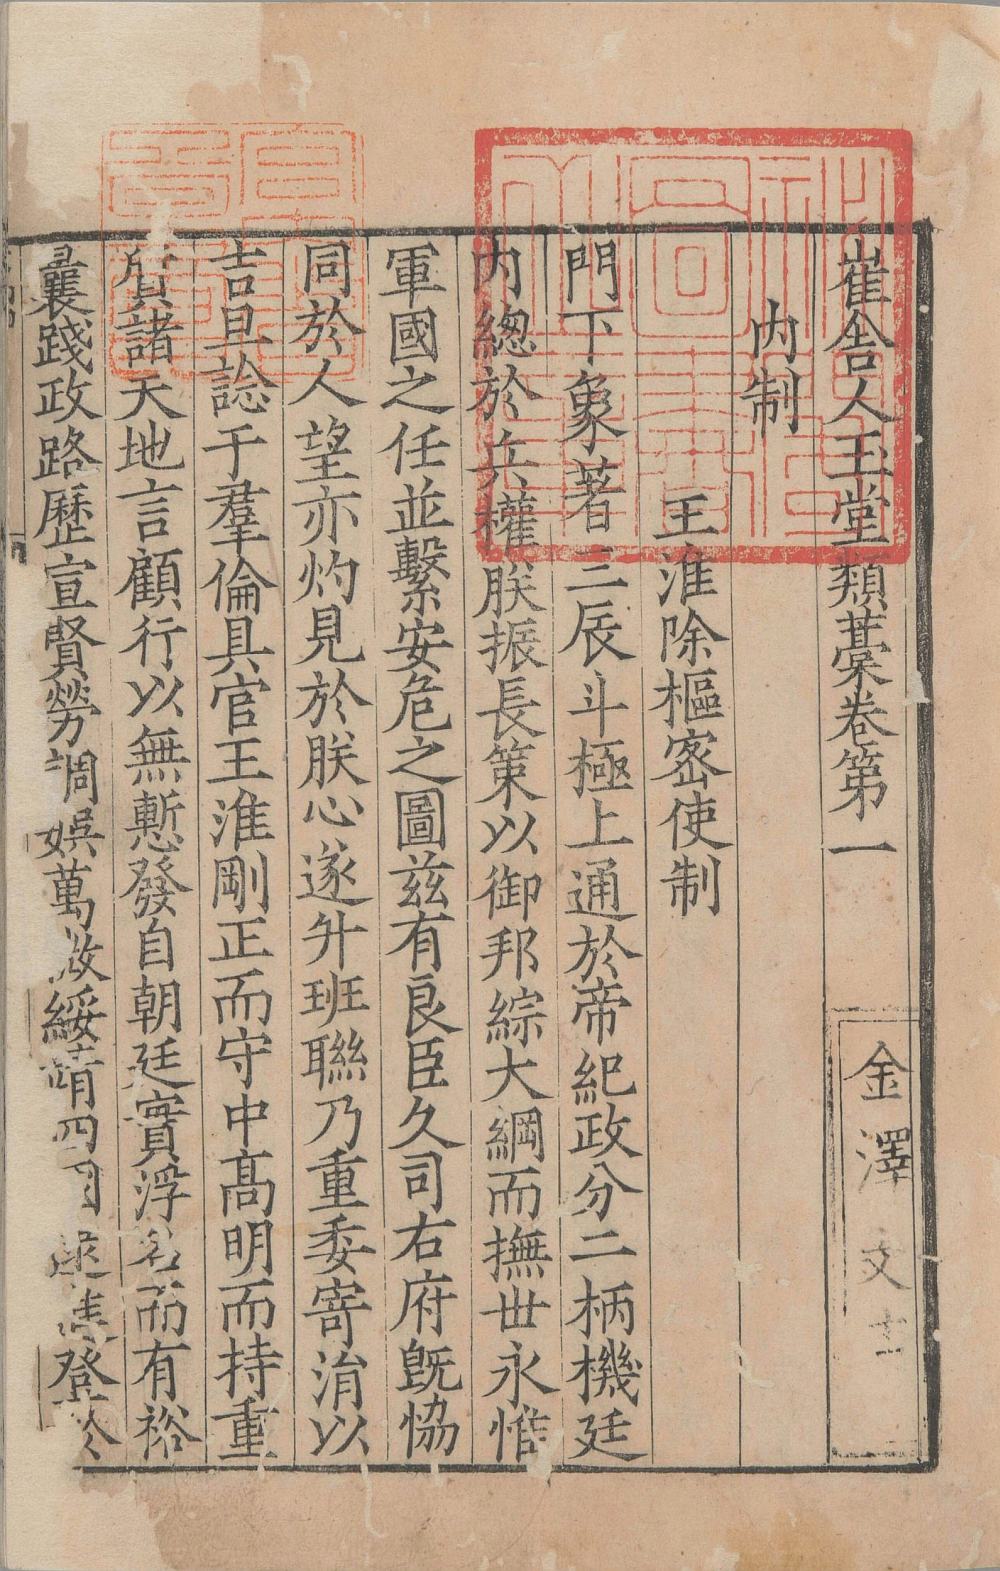 崔舍人玉堂類藁卷第一
金澤文
内制
王淮除樞宻使制
門下象著三辰斗極上通於帝紀政分二柄機廷
内緫於兵權朕振長策以御邦綜大綱而撫世永惟
軍國之任並繫安危之圖兹有良臣久司右府旣恊
同於人望亦灼見於朕心遂升班聯乃重委寄涓以
吉旦諗于羣倫具官王淮剛正而守中髙明而持重
質諸天地言顧行以無慙發自朝廷實浮名而有裕
曩踐政路歷宣賢勞調娯萬微綏靖四國遂登於